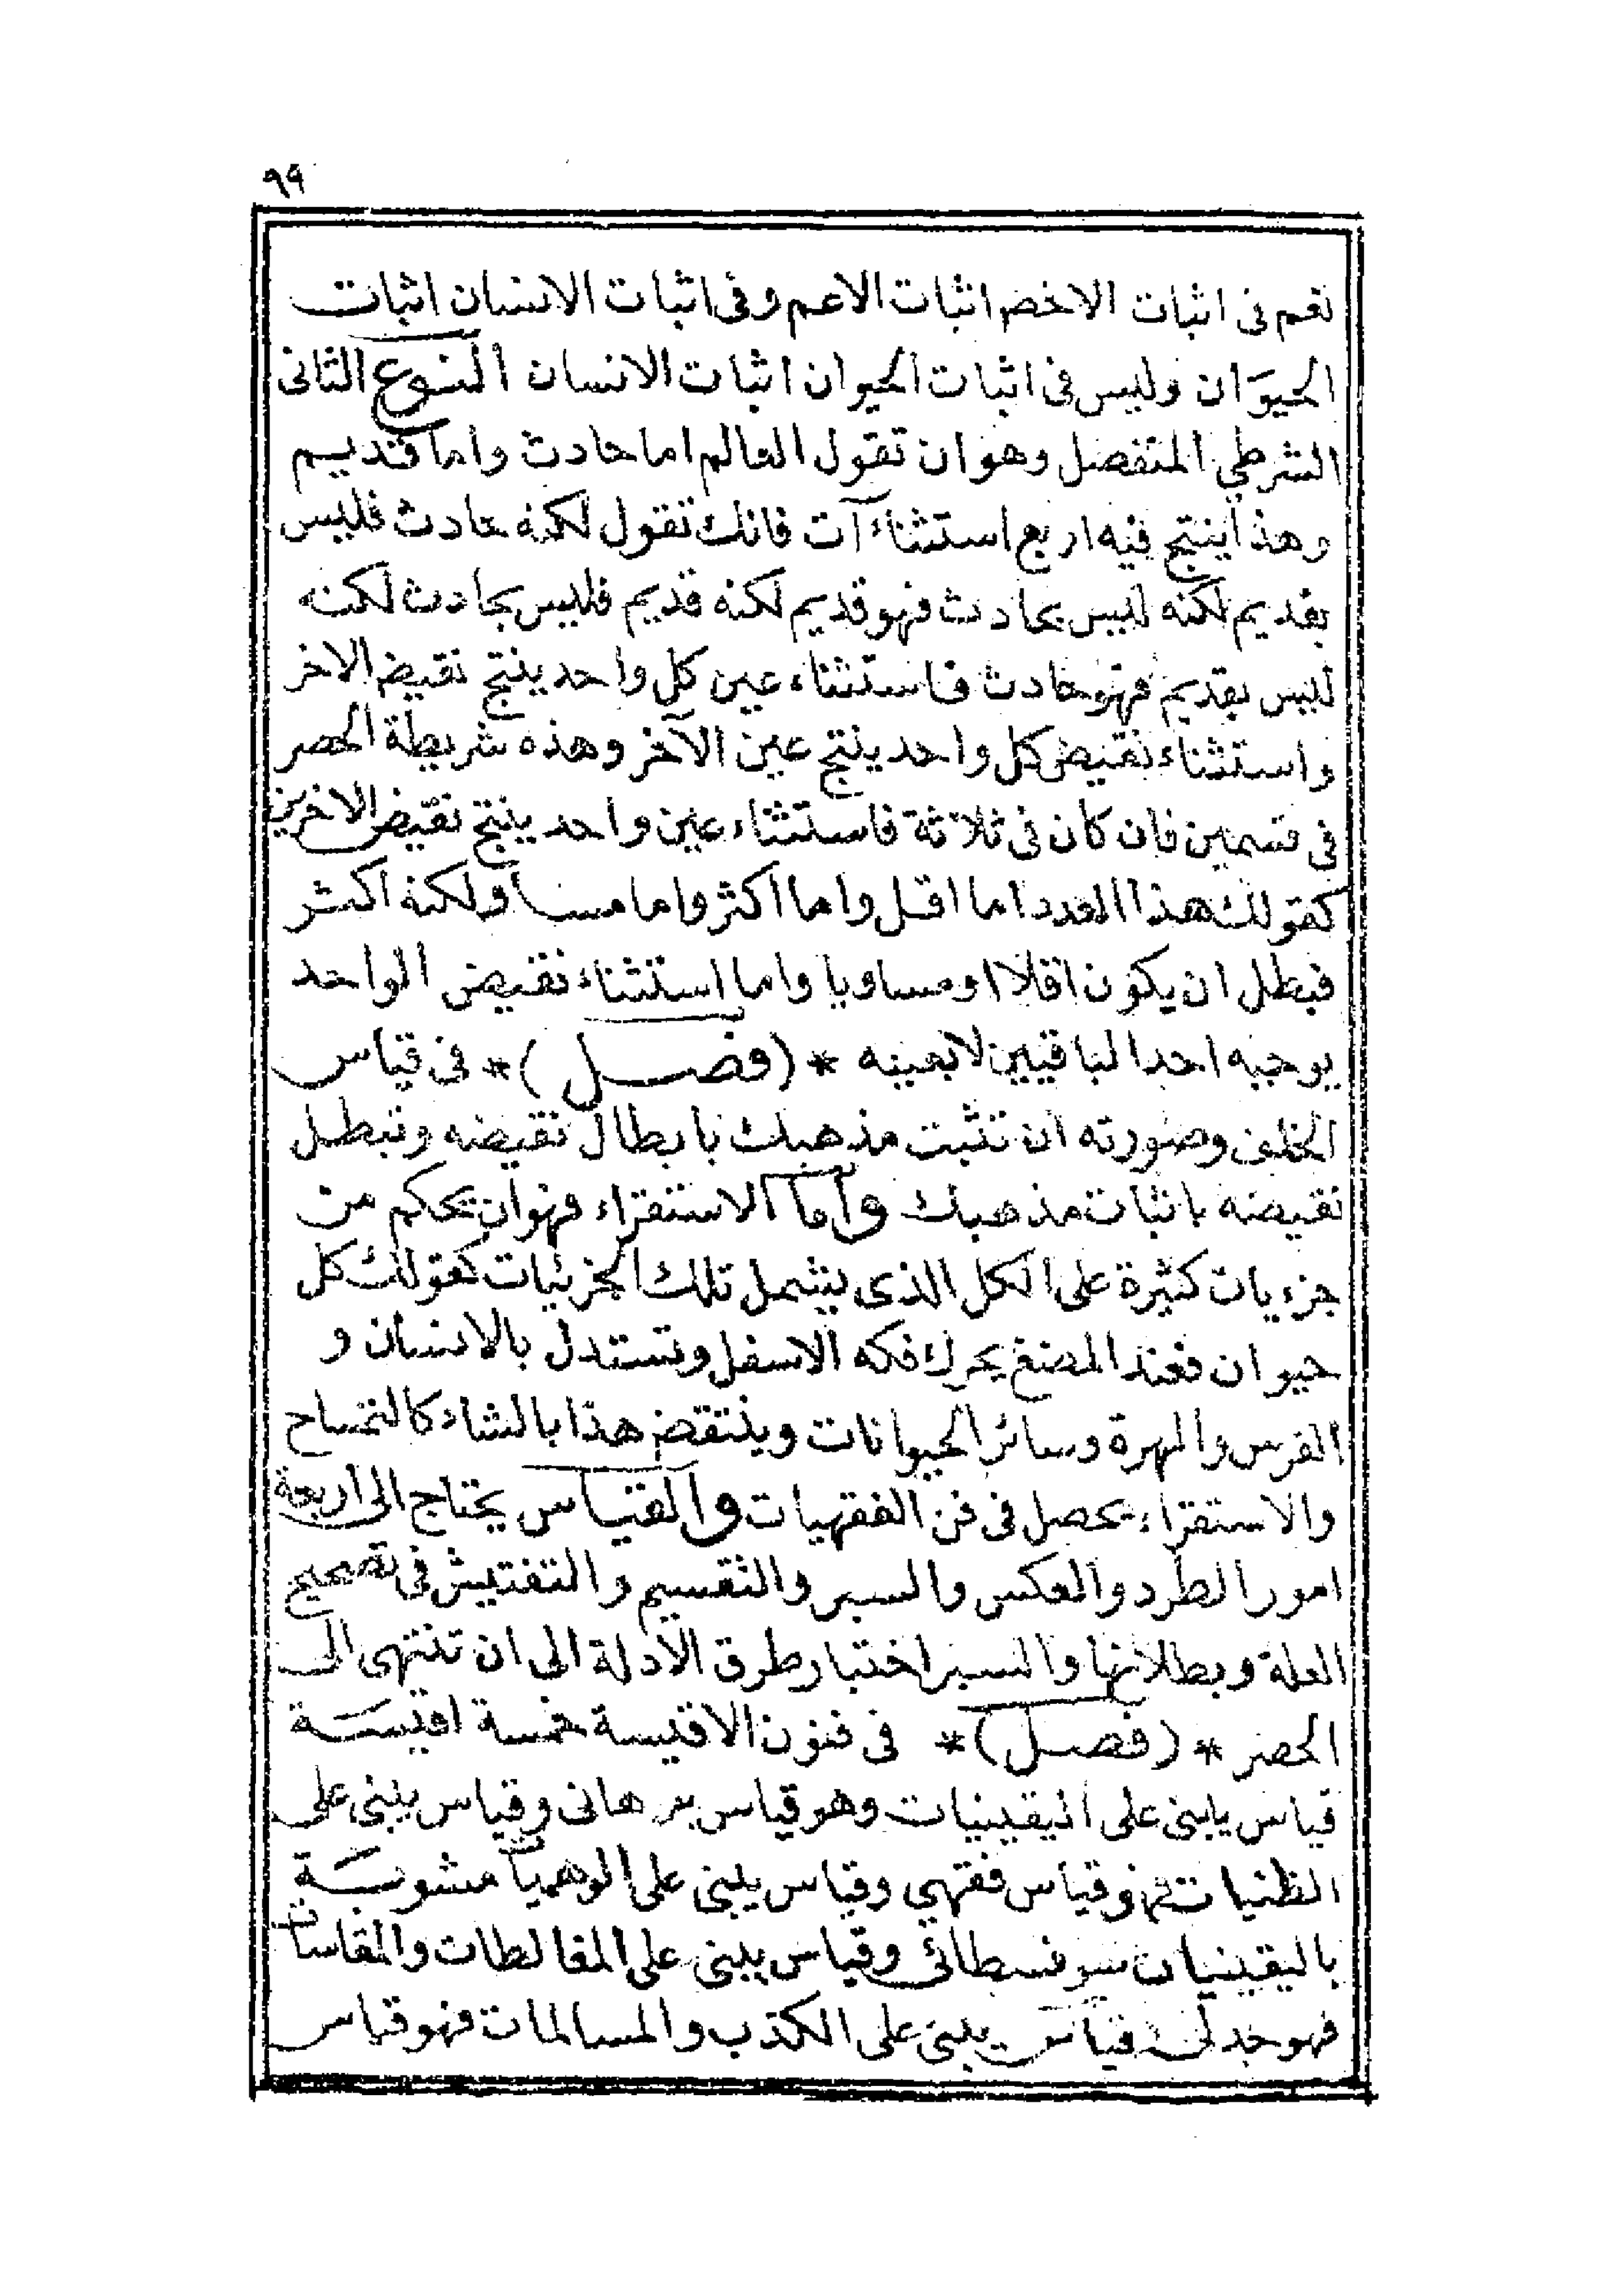 ٩٩
نعم فى اثبات الاخص اثبات الاعم وفى اثبات الانسان اثبات
الحيوان وليس فى اثبات الحيوان اثبات الانسان النوع الثانى
الشرطي المتفصل وهو ان تقول العالم اما حادث واما قديم
وهذا ينتج فيه اربع استثناآت فانك تقول لكنه حادث فليس
بقديم لكنه ليس بحادث فهو قديم لكنه قديم فليس بحادث لكنه
ليس بقديم فهو حادث فاستثناء عين كل واحد ينتج نقيض الاخر
واستثناء نقيض كل واحد ينتج عين الآخر وهذه شريطة الحصر
فى قسمين فان كان فى ثلاثة فاستثناء عين واحد ينتج نقيض الاخرين
كقولك هذا العدد اما اقل واما اكثر واما مساو لكنه اكثر
فبطل ان يكون اقلا او مساويا واما استثناء نقيض الواحد
يوجبه احد الباقيين لا بعينه * (فصل) * فى قياس
الخلف وصورته ان تثبت مذهبك بابطال نقيضه وتبطل
نقيضه باثبات مذهبك واما الاستقراء فهو ان يحكم من
جزءيات كثيرة على الكل الذى يشمل تلك الجزئيات كقولك كل
حيوان فعند المضغ يحرك فكه الاسفل وتستدل بالانسان و
الفرس والهرة وسائر الحيوانات وينتقض هذا بالشاذ كالتمساح
والاستقراء يحصل فى فن الفقهيات والقياس يحتاج الى اربعة
امور الطرد والعكس والسبر والتقسيم والتفتيش فى تصحيح
العلة وبطلانها والسبر اختبار طرق الادلة الى ان تنتهى الى
الحصر * (فصل) * فى فنون الاقيسة خمسة اقيسة
قياس يابنى على اليقينيات وهو قياس برهانى وقياس يبنى على
الظنيات فهو قياس فقهي وقياس يبنى على الوهميات مشوبة
باليقينيات سوفسطائى وقياس يبنى على المغالطات والمقاسات
فهو جدلى قياس يبنى على الكذب والمسالمات فهو قياس